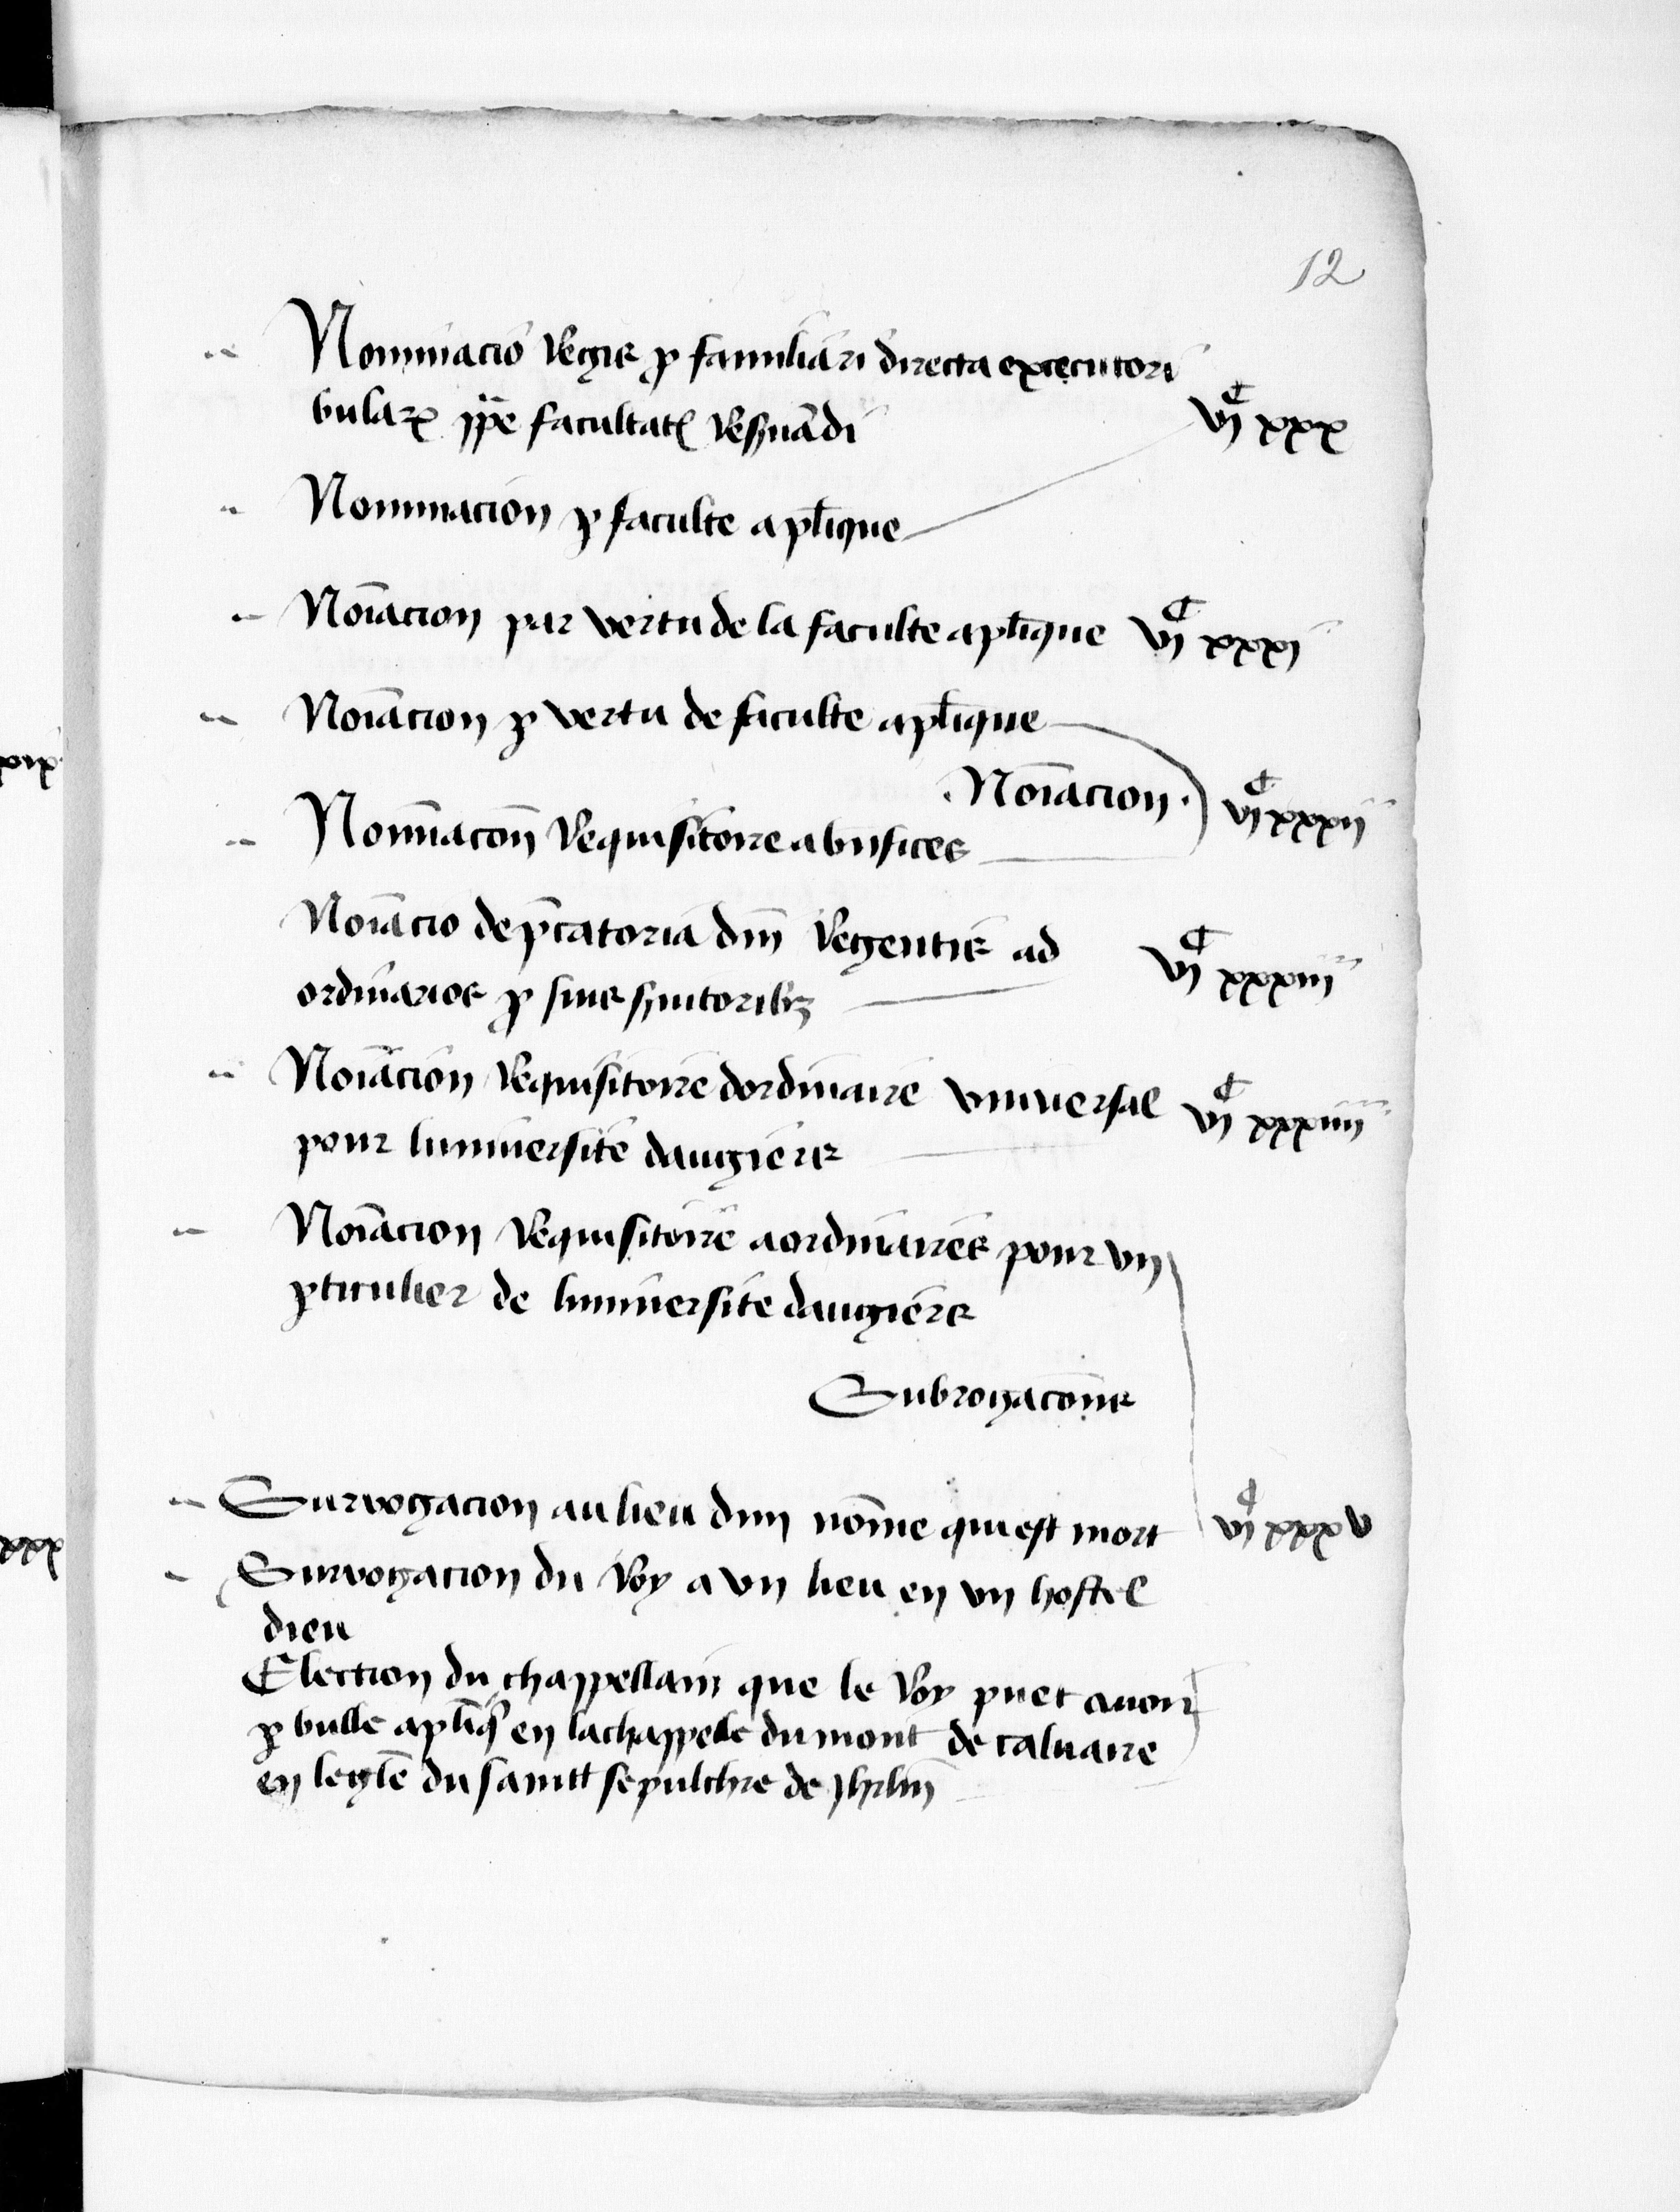 12
Nominacio Regis ꝑ familiari directa executori
bulaꝝ ppe facultatꝭ Resꝑuādi vjᶜ xxx
Nominacion ꝑ faculte aplique
Noīacion par vertu de la faculte aplique vjᶜ xxxj
Noīacion ꝑ vertu de faculte aplique
Noīacion
Nomīacōn Requisitoire a bnfices vjᶜ xxxij
Noīacio dep̄catoria dnī Regentis ad
ordinarios ꝓ suis ꝫuitoribꝫ vjᶜ xxxiij
Noīacion Requisitoire dordinaire vniuersal vjᶜ xxxiiij
pour luniuersite dangiers
Noīacion Requisitoire a ordinaires pour vn
ꝑticulier de luniuersite dangiers
Subrogacōns
Surrogacion au lieu dun nōme qui est mort vjᶜ xxxv
Surrogacion du Roy a vn lieu en vn hostel
dieu
Election du chappellain que le Roy puet auoir
ꝑ bulle apliqͣ en la chappelle du mont de caluaire
en leglē du sainct sepulchre de Jhrlm̄